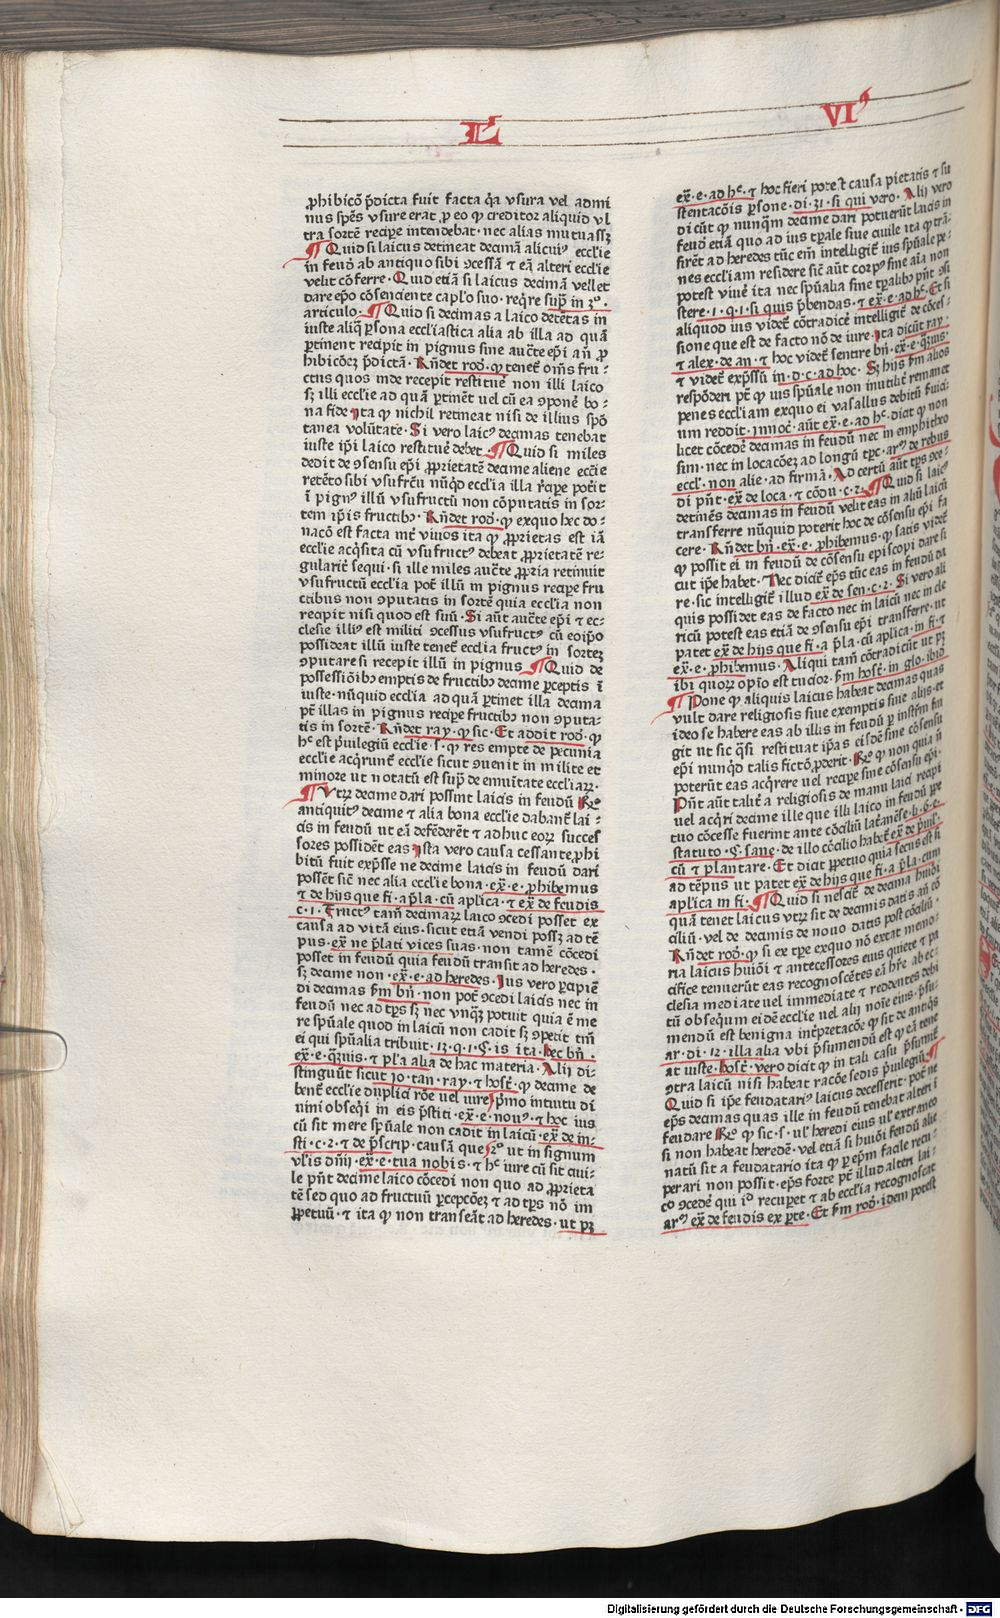 L VI
ꝓhibicō p̄dicta fuit facta q̄a vsura vel admi
nus spēs vsure erat ꝓ eo ꝙ creditor aliquid vl
tra sortē recipe intendebat · nec alias mutuassꝫ
¶ Quid si laicus detineat decimā alicuiꝰ ecclie
in feuō ab antiquo sibi ꝯcessā ⁊ eā alteri ecclie
velit cōferre · Quid etiā si laicus decimā vellet
dare epo cōsenciente caplo suo · reqre sup̄ in 3º ·
articulo · ¶ Quid si decimas a laico detētas in
iuste aliq̄ ꝑsona ecclīastica alia ab illa ad quā
ꝑtinent recipit in pignus sine aucte epi an̄ ꝓ
hibicōeꝫ p̄dictā · Rn̄det rod · ꝙ tenet om̄s fru ·
ctus quos inde recepit restitue non illi laico
sꝫ illi ecclie ad quā ꝑtinēt uel cū ea ꝯponē bo ·
na fide ita ꝙ nichil retineat nisi de illius spō
tanea volūtate · Si vero laicꝰ decimas tenebat
iuste ipi laico restituē debet · ¶ Quid si miles
dedit de ꝯsensu epi ꝓprietatē decime aliene eccie
retēto sibi vsufrcu nūqd ecclia illa recipe poterit
ī pignꝰ illū vsufructū non cōputatis in sor ·
tem ip̄is fructibꝫ · Rn̄det rod · ꝙ exquo hec do ·
nacō est facta int̄ viuos ita ꝙ ꝓprietas est iā
ecclie acqsita cū vsufructꝰ debeat ꝓprietatē re ·
gularit sequi · si ille miles aucte ꝓpria retinuit
vsufructū ecclia pot illū in pignus recipe fru
ctibus non ꝯputatis in sortē quia ecclia non
recipit nisi quod est suū · Si aūt aucte epi ⁊ ec ·
clesie illiꝰ est militi ꝯcessus vsufructꝰ cū eoipo
possideat illū iuste tenet ecclia fructꝰ in sorteꝫ
ꝯputare si recepit illū in pignus ¶ Quid de
possessiōibꝫ emptis de fructibꝫ decime ꝑceptis ī
iuste · nūquid ecclia ad quā ꝑtinet illa decima
pt illas in pignus recipe fructibꝫ non ꝯputa ·
tis in sortē · Rn̄det ray · ꝙ sic · Et addit rod · ꝙ
hᶜ est p̄uilegiū ecclie · s · ꝙ res empte de pecunia
ecclie acqrunt ecclie sicut ꝯuenit in milite et
minore ut notatū est sup̄ de emuitate eccliaꝝ ·
¶ Vtꝝ decime dari possint laicis in feudū Rº
antiquitꝰ decime ⁊ alia bona ecclie dabant lai ·
cis in feudū ut eā defēderēt ⁊ adhuc eoꝝ succes
sores possidēt eas ista vero causa cessante ꝓhi
bitū fuit exp̄sse ne decime laicis in feudū dari
possēt sicut nec alia ecclie bona · ex̄ · e · ꝓhibemus
⁊ de hijs que fi · a p̄la · cū aplica · ⁊ ex̄ de feudis
c · 1 · Fructꝰ tamē decimaꝝ laico ꝯcedi posset ex
causa ad vitā eius · sicut etiā vendi possꝫ ad tē
pus · ex̄ ne p̄lati vices suas · non tamē cōcedi
posset in feudū quia feudū transit ad heredes ·
sꝫ decime non · ex̄ · e · ad heredes · Ius vero ꝑcipiē
di decimas fm̄ bn̄ · non pot ꝯcedi laicis nec in
feudū nec ad tps sꝫ nec vnqꝫ potuit quia ē me
re spūale quod in laicū non cadit sꝫ ꝯpetit tm̄
ei qui spūalia tribuit · 12 · q · 1 · §· is ita · hec bn̄ ·
ex̄ · e · qꝫuis · ⁊ pla alia de hac materia · Alij di ·
stinguūt sicut io · tan · ray · ⁊ host · ꝙ decime de
bent ecclie duplici rōe vel iure p̄mo intuitu di
uini obseqi in eis p̄stiti · ex̄ · e · nouꝰ · ⁊ hoc ius
cū sit mere spūale non cadit in laicū · ex̄ de in ·
sti · c · 2 · ⁊ de p̄scrip · causā que 2º ut in signum
vl̄is dn̄ij · ex̄ · e · tua nobis · ⁊ hᶜ iure cū sit ciui ·
le pn̄t decime laico cōcedi non quo ad ꝓprieta
tē sed quo ad fructuū ꝑcepcōeꝫ ⁊ ad tps nō im
ꝑpetuū · ⁊ ita ꝙ non transeāt ad heredes · ut pꝫ
ex̄ · e · ad hᶜ · ⁊ hoc fieri potest causa pietatis ⁊ su
stentacōis ꝑsone · di · 31 · si qui vero · Alij vero
dicūt ꝙ nunqm̄ decime dari potuerūt laicis in
feudū etiā quo ad ius tꝑale siue ciuile ita ꝙ trā ·
sirēt ad heredes tūc em̄ intelligit ius spūale pe ·
nes eccliam residere sic aūt corpꝰ sine aīa non
potest viuē ita nec spūalia sine tꝑalibꝫ pn̄t ꝯsi
stere · 1 · q · 1 · si quis p̄bendas · ⁊ ex̄ · e · ad hᶜ · Et si
aliquod ius videt cōtradicē intelligit de cōces ·
sione que est de facto nō de iure · Ita dicūt ray ·
⁊ alex · de an · ⁊ hoc videt sentire bn̄ · ex̄ · e · qꝫuis ·
⁊ videt exp̄ssū in · d · c · ad hoc · Sꝫ hijs fm̄ alios
respōderi pt ꝙ ius spūale non inutilit remanet
penes eccliam exquo ei vasallus debitū suici ·
um reddit · innoc · aūt ex̄ · e · ad hᶜ · dicit ꝙ non
licet cōcedē decimas in feudū nec in emphiteo
sim · nec in locacōeꝫ ad longū tpꝫ · arᵒ de rebus
eccl · non alie · ad firmā · Ad certū aūt tps ꝯce ·
di pn̄t · ex̄ de loca · ⁊ cōdu · c · 2 · ¶ Quid si laicꝰ
detinēs decimas in feudū velit eas in aliū laicū
transferre nūquid poterit hoc de cōsensu epi fa
cere · Rn̄det bn̄ · ex̄ · e · ꝓhibemus · ꝙ satis videt
ꝙ possit ei in feudū de cōsensu episcopi dare si
cut ipe habet · Nec dicit eps tūc eas in feudū da
re · sic intelligit illud ex̄ de sen · c · 2 · Si vero ali
quis possidet eas de facto nec in laicū nec in cle
ricū potest eas etiā de ꝯsensu epi transferre · ut
patet ex̄ de hijs que fi · a p̄la · cū aplica · in fi · ⁊
ex̄ · e · ꝓhibemus · Aliqui tam̄ cōtradicūt ut pꝫ
ibi quoꝝ opīo est tucior · fm̄ host · in glo · ibid
¶ Pone ꝙ aliquis laicus habeat decimas quas
vult dare religiosis siue exemptis siue alijs · et
ideo se habere eas ab illis in feudū ꝑ instr̄m fin
git ut sic qsi restituat ip̄as eisdē sine cōsensu
epi nunqd talis fictō ꝓderit · Rº ꝙ non quia ii
poterūt eas acqrere uel recipe sine cōsensu epi ·
Pn̄t aūt talit a religiosis de manu laici recipi
uel acqri decime ille que illi laico in feudū ꝑpe
tuo cōcesse fuerint ante cōciliū lateran̄se · li · 6 · e ·
statuto · §· sane · de illo cōcilio habet ex̄ de p̄uil ·
cū ⁊ plantare · Et dicit ꝑpetuo quia secus est si
ad tēpus ut patet ex̄ de hijs que fi · a p̄la · cum
aplica in fi · ¶ Quid si nescit de decima huiōi
quā tenet laicus vtꝝ sit de decimis datis an̄ cō
ciliū · vel de decimis de nouo datis post cōciliū ·
Rn̄det rod · ꝙ si ex tꝑe exquo nō extat memo ·
ria laicus huiōi ⁊ antecessores eius quiete ⁊ pa
cifice tenuerūt eas recognoscētes eā hr̄e ab ec ·
clesia mediate uel immediate ⁊ reddentes debi
tū obsequm eidē ecclie uel alij noīe eius · p̄su ·
mendū est benigna int̄pretacōe ꝙ sit de antiqs
ar · di · 12 · illa alia vbi p̄sumendū est ꝙ eā tene
at iuste · host · vero dicit ꝙ in tali casu p̄sumit
ꝯtra laicū nisi habeat racōe sedis p̄uilegiū ¶
Quid si ipe feudatariꝰ laicus decesserit · pot ne
eps decimas quas ille in feudū tenebat alteri ī
feudare Rº ꝙ sic · s · ul heredi eius ul extraneo
si non habeat heredē · vel etiā si huiōi feudū alic
natū sit a feudatario ita ꝙ ꝑ epm̄ facile recu ·
perari non possit · eps forte pt illud alteri lai ·
co ꝯcedē qui id recuꝑet ⁊ ab ecclia recognoscat
arᵒ ex̄ de feudis ex ꝑte · Et fm̄ rod · idem potest
Digitalisierung gefördert durch die Deutsche Forschungsgemeinschaft - DFG